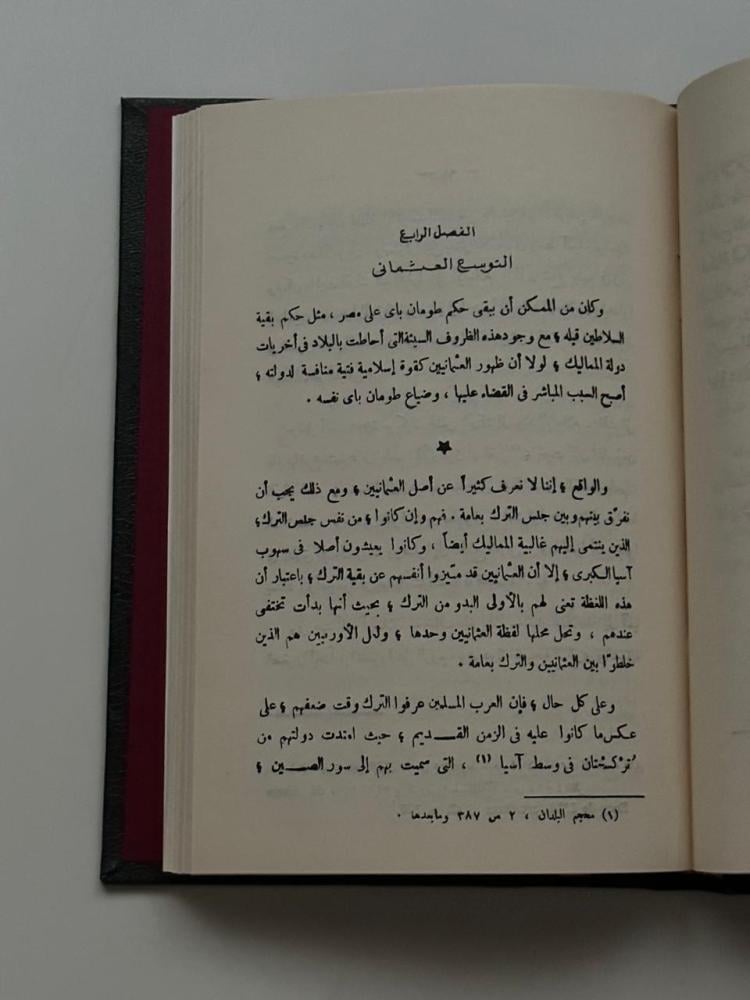 الفصل الرابع
التوسع العثمانى
وكان من الممكن أن يبقى حكم طومان باى على مصر ، مثل حكم بقية
السلاطين قبله ؛ مع وجود هذه الظروف السيئة التى أحاطت بالبلاد فى أخريات
دولة المماليك ؛ لولا أن ظهور العثمانيين كقوة إسلامية فتية منافسة لدولته ؛
أصبح السبب المباشر فى القضاء عليها ، وضياع طومان باى نفسه .
★
والواقع ؛ إننا لا نعرف كثيراً عن أصل العثمانيين ؛ ومع ذلك يجب أن
نفرّق بينهم وبين جلس الترك بعامة . فهم وإن كانوا ؛ من نفس جلس الترك ؛
الذين ينتمى إليهم غالبية المماليك أيضاً ، وكانوا يعيشون أصلا فى سهوب
آسيا الكبرى ؛ إلا أن العثمانيين قد متيزوا أنفسهم عن بقية الترك ؛ باعتبار أن
هذه اللفظة تعنى لهم بالأولى البدو من الترك ؛ بحيث أنها بدأت تختفى
عندهم ، وتحل محلها لفظة العثمانيين وحدها ؛ ولعل الأوربيين هم الذين
خلطوا بين العثمانيين والترك بعامة .
وعلى كل حال ؛ فإن العرب المسلمين عرفوا الترك وقت ضعفهم ؛ على
عكس ما كانوا عليه فى الزمن القـــديم ؛ حيث امتدت دولتهم من
تُركستان فى وسط آسيا (١) ، التى سميت بهم إلى سور الصــين ؛
(١) معجم البلدان ، ٢ ص ٣٨٧ ومابعدها .